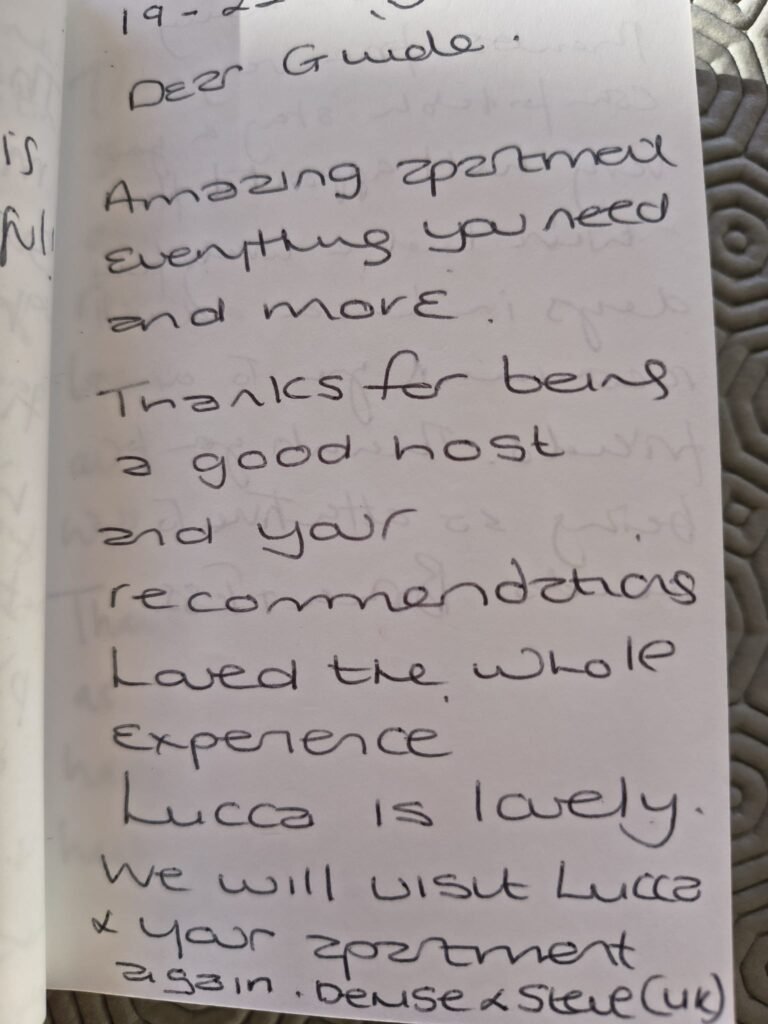 19 - 2
Dear Guide.
Amazing apartment
everything you need
and more.
Thanks for being
a good host
and your
recommendations
Loved the whole
experience
Lucca is lovely.
We will visit Lucca
& your apartment
again. Denise & Steve (UK)
is